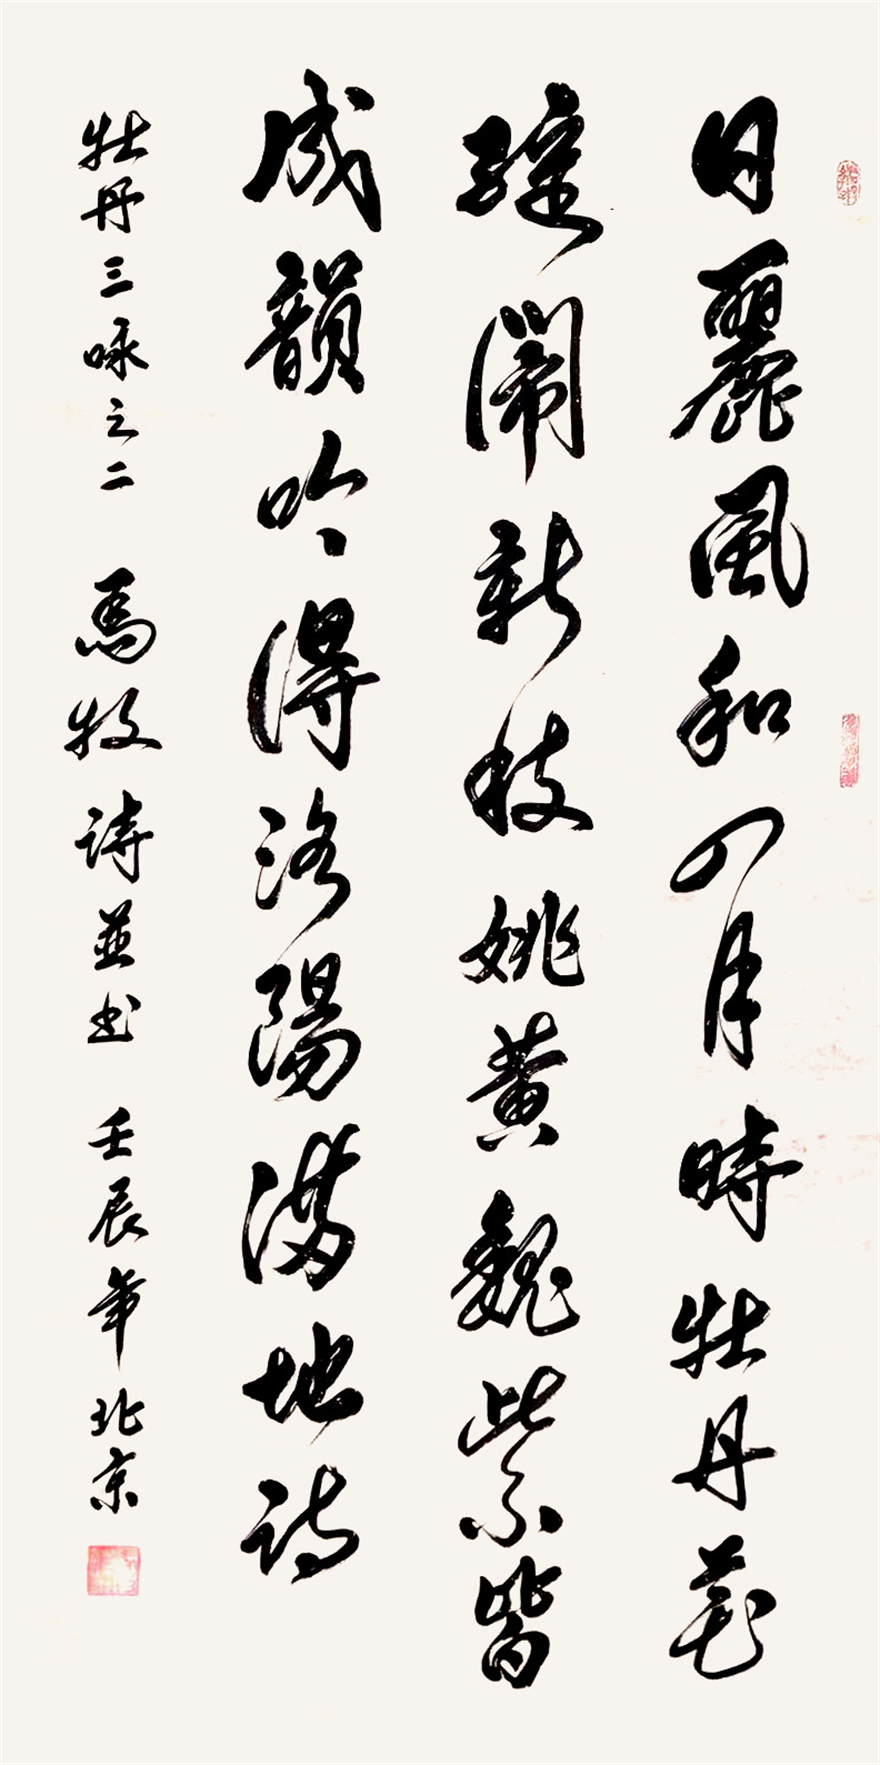 日麗風和四月時牡丹花
綻鬧新枝姚黃魏紫皆
成韻吟得洛陽滿地詩
牡丹三咏之二 馬牧詩並书 壬辰年北京